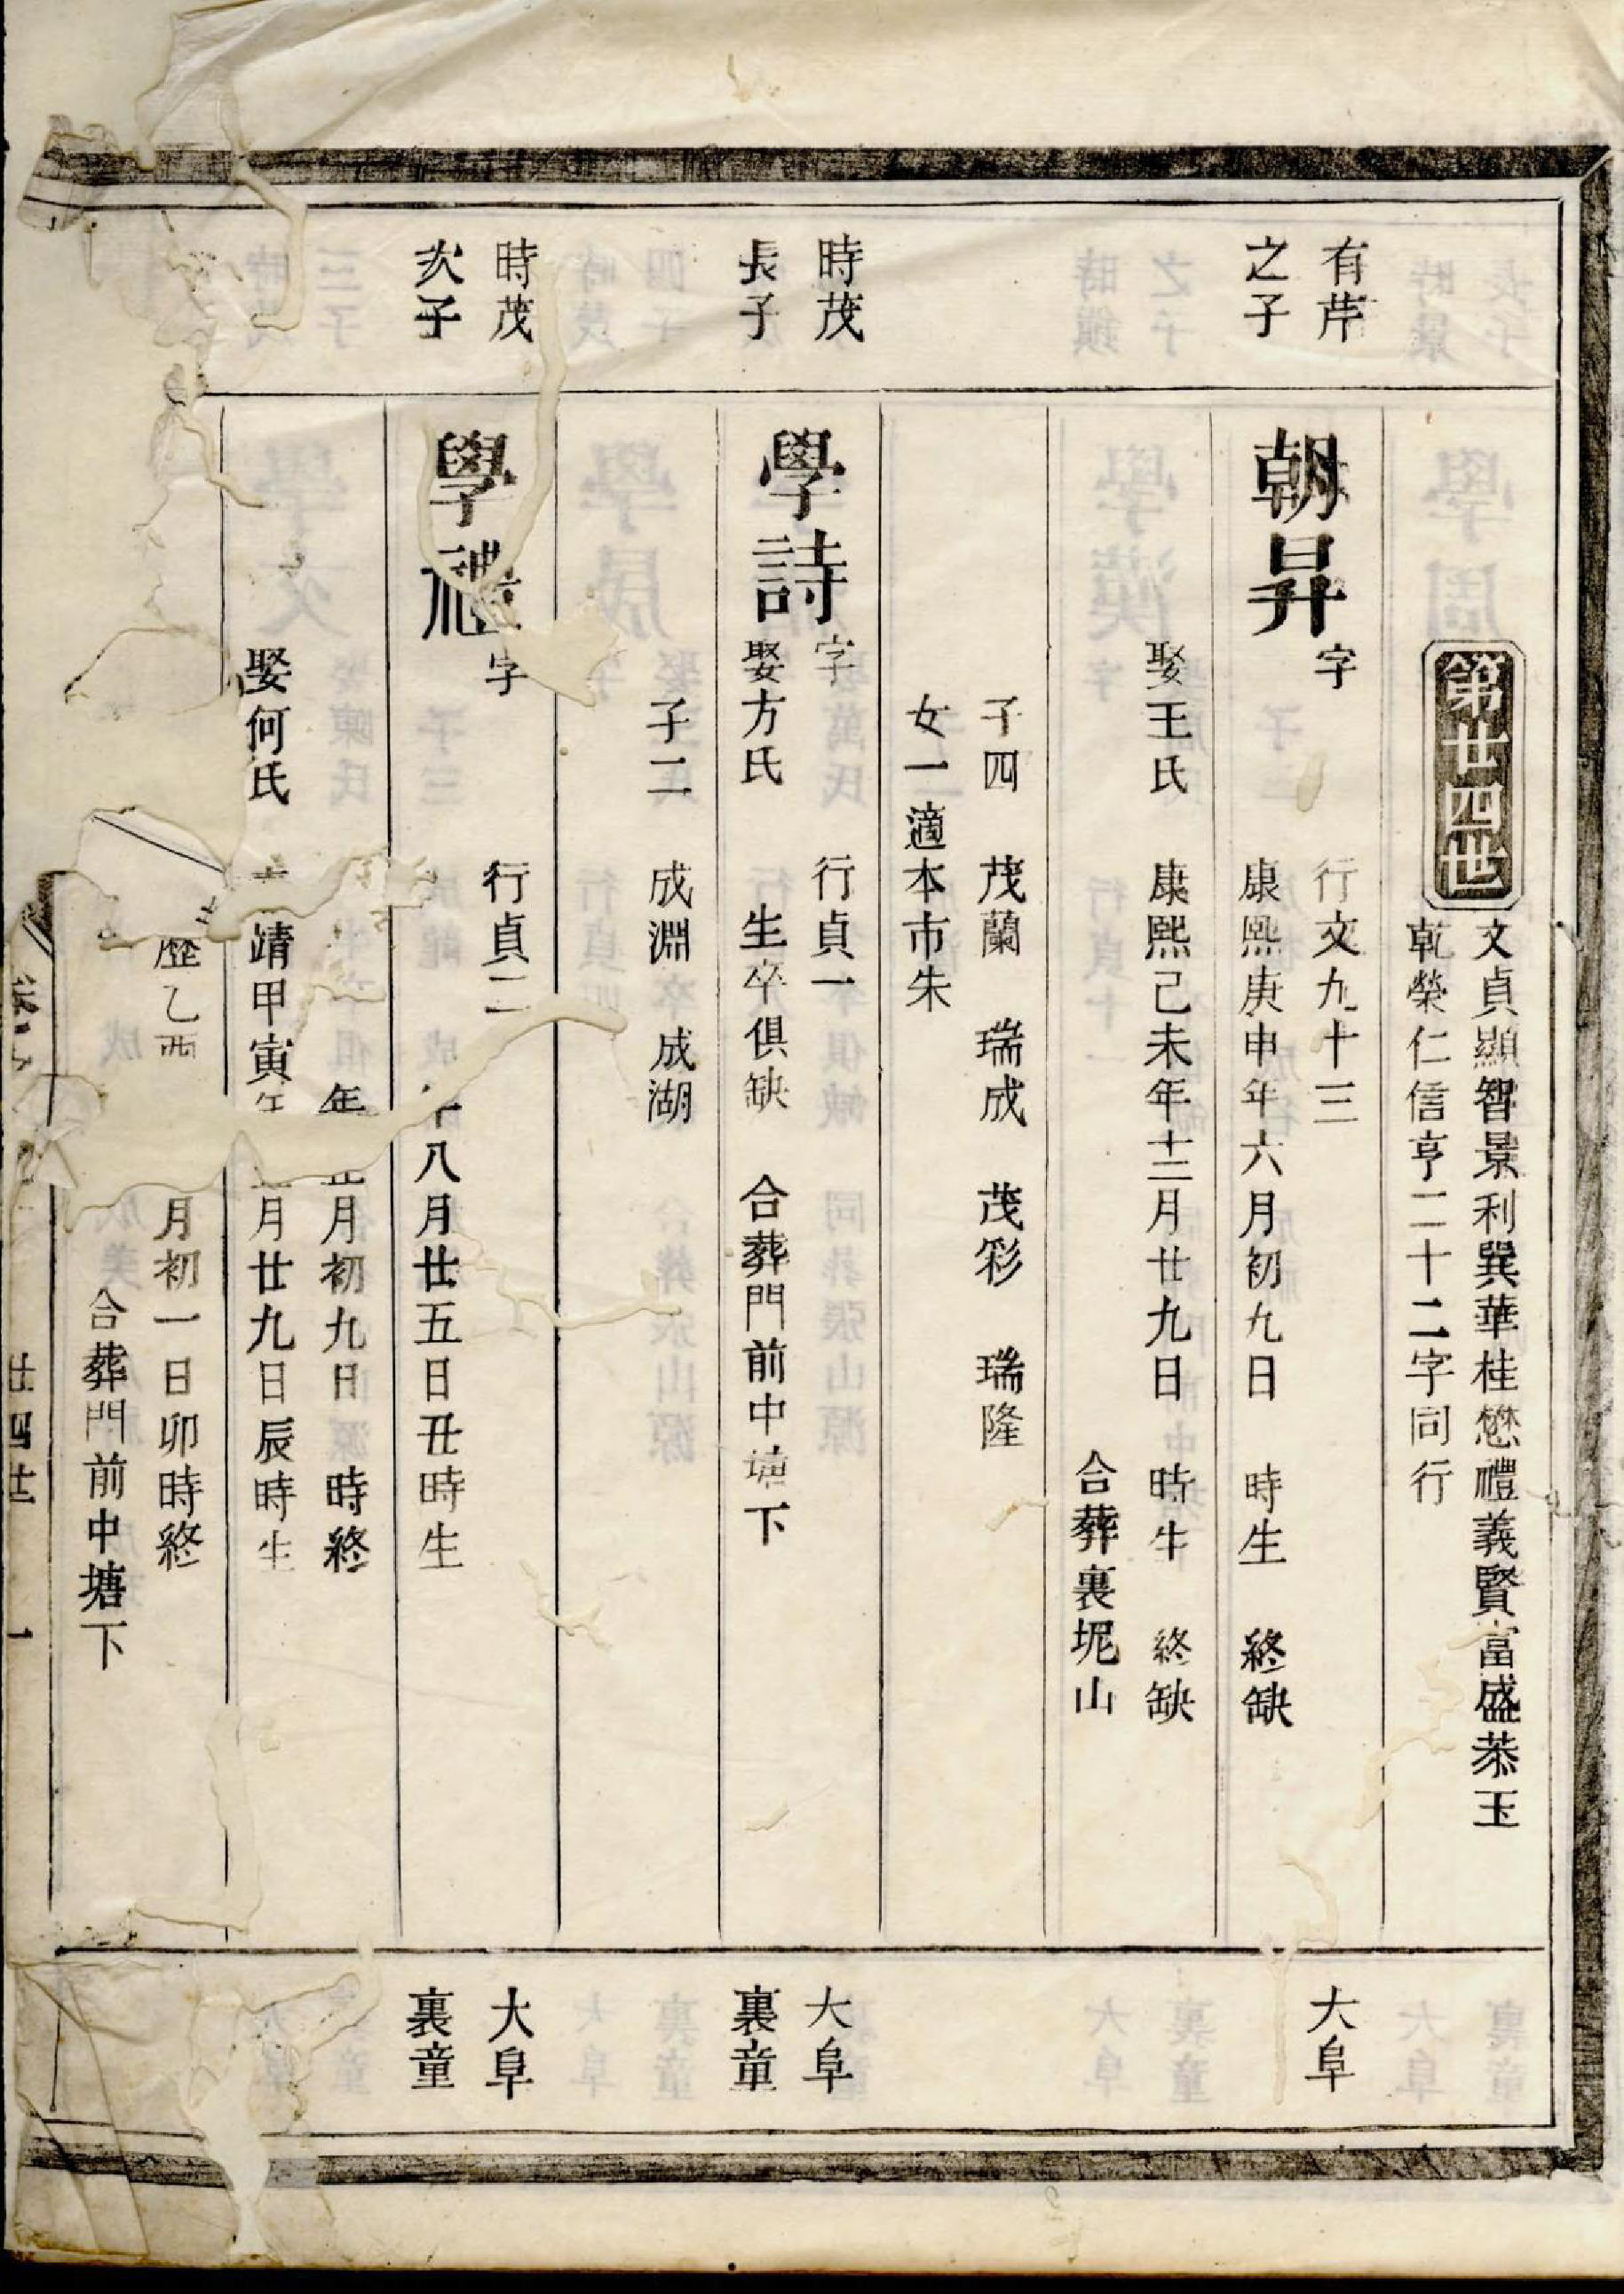 第廿四世
文貞顯智景利巽華桂懋禮義賢富盛恭玉
乾榮仁信亨二十二字同行
有芹
之子
朝昇
字 行文九十三
康熙庚申年六月初九日 時生 終缺
大阜
娶王氏 康熙己未年十二月廿九日 時生 終缺
合葬裏坭山
子四 茂蘭 瑞成 茂彩 瑞隆
女一適本市朱
時茂
長子
學詩
字 行貞一
娶方氏 生卒俱缺 合葬門前中塘下
大阜
裏童
子二 成淵 成湖
時茂
次子
學禮
字 行貞二
年八月廿五日丑時生
大阜
裏童
年 月初九日 時終
娶何氏 靖甲寅年 月廿九日辰時生
歷乙酉 月初一日卯時終
合葬門前中塘下
廿四世 一